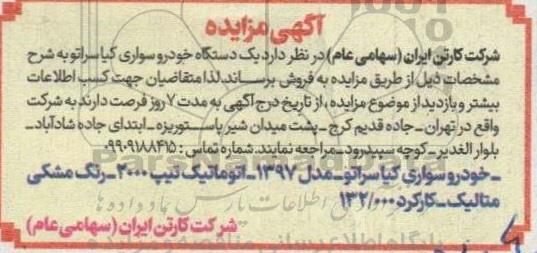 آگهی مزایده
شرکت کارتن ایران (سهامی عام) در نظر دارد یک دستگاه خودرو سواری کیا سراتو به شرح
مشخصات ذیل از طریق مزایده به فروش برساند. لذا متقاضیان جهت کسب اطلاعات
بیشتر و بازدید از موضوع مزایده، از تاریخ درج آگهی به مدت ۷ روز فرصت دارند به شرکت
واقع در تهران ـ جاده قدیم کرج ـ پشت میدان شیر پاستوریزه ـ ابتدای جاده شادآباد ـ
بلوار الغدیر ـ کوچه سپیدرود ـ مراجعه نمایند. شماره تماس : ۰۹۹۰۹۱۸۸۴۱۵
ـ خودرو سواری کیا سراتو ـ مدل ۱۳۹۷ ـ اتوماتیک تیپ ۲۰۰۰ ـ رنگ مشکی
متالیک ـ کارکرد ۱۳۲/۰۰۰
شرکت کارتن ایران (سهامی عام)